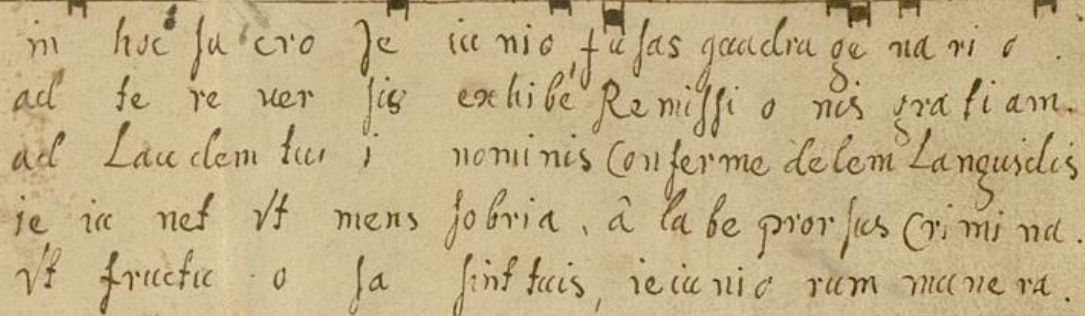 in hoc sa cro Je iu nio, fusas quadra ge na ri o.
ad te re uer sis exhibe Remissi o nis gratiam.
ad Laudem tui i nominis Confer medelem Languidis
ie iu net vt mens sobria, â labe prorsus Crimina.
vt fructu o sa sint tuis, ieiunio rum munera.